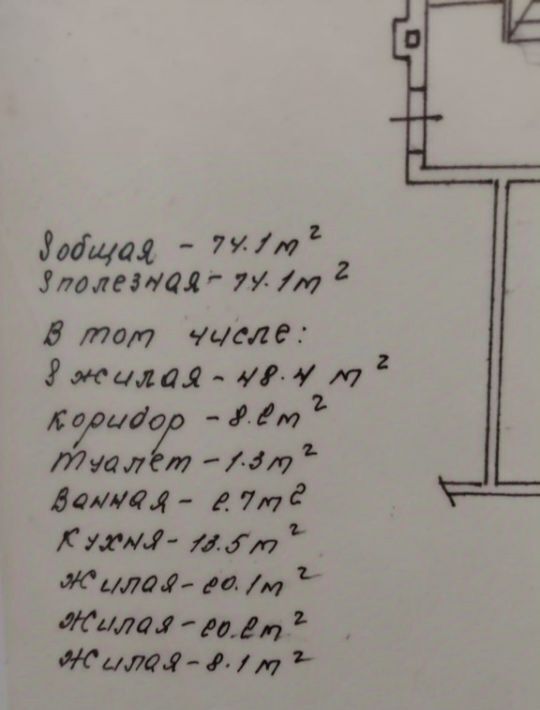 Sобщая - 74.1 м²
Sполезная - 74.1 м²
В том числе:
S жилая - 48.4 м²
коридор - 8.2 м²
туалет - 1.3 м²
Ванная - 2.7 м²
Кухня - 13.5 м²
Жилая - 20.1 м²
Жилая - 20.2 м²
Жилая - 8.1 м²